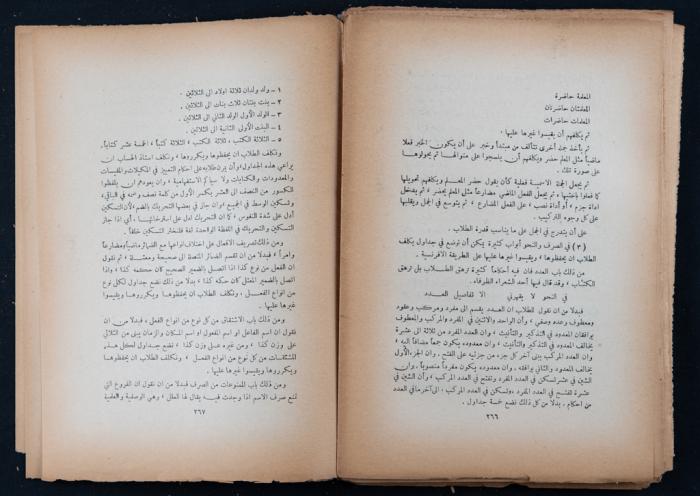 المعلمة حاضرة
المعلمتان حاضرتان
المعلمات حاضرات
ثم يكلفهم أن يقيسوا غيرها عليها .
ثم يأخذ جمل أخرى تتألف من مبتدأ وخبر على أن يكون الخبر فعلا
ماضياً مثل المعلم حضر ويكلفهم أن ينسجوا على منوالها ثم يحولوها
على صورة تلك .
ثم يجعل الجملة الاسمية فعلية كأن يقول حضر المعلم ويكلفهم تحويلها
كما فعلوا باختها ، ثم يجعل الفعل الماضي مضارعاً مثل المعلم يحضر ، ثم يدخل
اداة جزم ، أو أداة نصب ، على الفعل المضارع ، ثم يتوسع في الجمل ويقلبها
على كل وجوه التركيب .
على أن يتدرج في الجمل على ما يناسب قدرة الطلاب .
(٣) في الصرف والنحو أبواب كثيرة يمكن أن توضع في جداول يكلف
الطلاب ان يحفظوها ، ويقيسوا غيرها عليها على الطريقة الافرنسية .
من ذلك باب العدد فان فيه أحكاماً كثيرة ترهق الطلاب بلى ترهق
الكتاب ، وقد قال فيها أحد الشعراء الظرفاء .
في النحو لا يقهرني الا تفاصيل العدد
فبدلا من ان نقول للطلاب ان العدد يقسم الى مفرد ومركب وعقود
ومعطوف وعدد وصفي ، وأن الواحد والاثنين في المفرد والمركب والمعطوف
يوافقان المعدود في التذكير والتأنيث ، وان العدد المفرد من ثلاثة الى عشرة
يخالف المعدود في التذكير والتأنيث ، وان معدوده يكون جمعاً مضافاً اليه ،
وان العدد المركب يبنى آخر كل جزء من جزئيه على الفتح . وان الجزء الأول
يخالف المعدود والثاني يوافقه . وان معدوده يكون مفرداً منصوباً ، وان
الشين في عشر تسكن في العدد المفرد وتفتح في العدد المركب ، وأن الشين في
عشرة تفتح في العدد المفرد ، وتسكن في العدد المركب ، الى آخر ما في العدد
من أحكام . بدلا من كل ذلك نضع خمسة جداول .
٢٦٦
١ – ولد ولدان ثلاثة اولاد الى الثلاثين .
٢ – بنت بنتان ثلاث بنات الى الثلاثين .
٣ – الولد الأول الولد الثاني الى الثلاثين .
٤ – البنت الأولى الثانية الى الثلاثين .
٥ – ثلاثة الكتب ، الثلاثة كتباً ، الخمسة عشر كتاباً .
ونكلف الطلاب ان يحفظوها ويكرروها ، ونكلف استاذ الحساب ان
يراعي هذه الجداول ، وأن يمرن طلابه على احكام التمييز في المكيلات والمقيسات
والمعدودات والكنايات ولا سيما كم الاستفهامية ، وان يعودهم ان يلفظوا
الكسور من النصف الى العشر بكسر الأول من كلمة نصف وضمه في الباقي ،
وتسكين الوسط في الجميع ، وان جاز في بعضها التحريك بالضم ، لأن التسكين
أدل على شدة النفوس ، كما ان التحريك ادل على استرخائها ، أي اذا جاز
التسكين والتحريك في اللفظة الواحدة لغة فلنختر التسكين خلقاً .
ومن ذلك تصريف الافعال على اختلاف انواعها مع الضمائر ماضياً ومضارعاً
وأمراً ، فبدلا من ان نقسم الضائر المتصلة الى صحيحة ومعتلة ، ثم نقول
ان الفعل من نوع كذا اذا اتصل بالضمير الصحيح كان حكمه كذا ، واذا
اتصل بالضمير المعتل كان حكمه كذا ، بدلا من ذلك نضع جداول لكل نوع
من انواع الفعل ، ونكلف الطلاب ان يحفظوها ويكرروها ويقيسوا
غيرها عليها .
ومن ذلك باب الاشتقاق من كل نوع من انواع الفعل ، فبدلا من ان
نقول ان اسم الفاعل او اسم المفعول او اسم المكان والزمان يبنى من الثلاثي
على وزن كذا ، ومن غيره على وزن كذا ، نضع جداول لكل هذه
المشتقات من كل نوع من انواع الفعل . ونكلف الطلاب ان يحفظوها
ويكرروها ويقيسوا غيرها عليها .
ومن ذلك باب الممنوعات من الصرف فبدلا من ان نقول ان الفروع التي
تمنع صرف الاسم اذا وجدت فيه يقال لها العلل ، وهي الوصفية والعلمية
٢٦٧